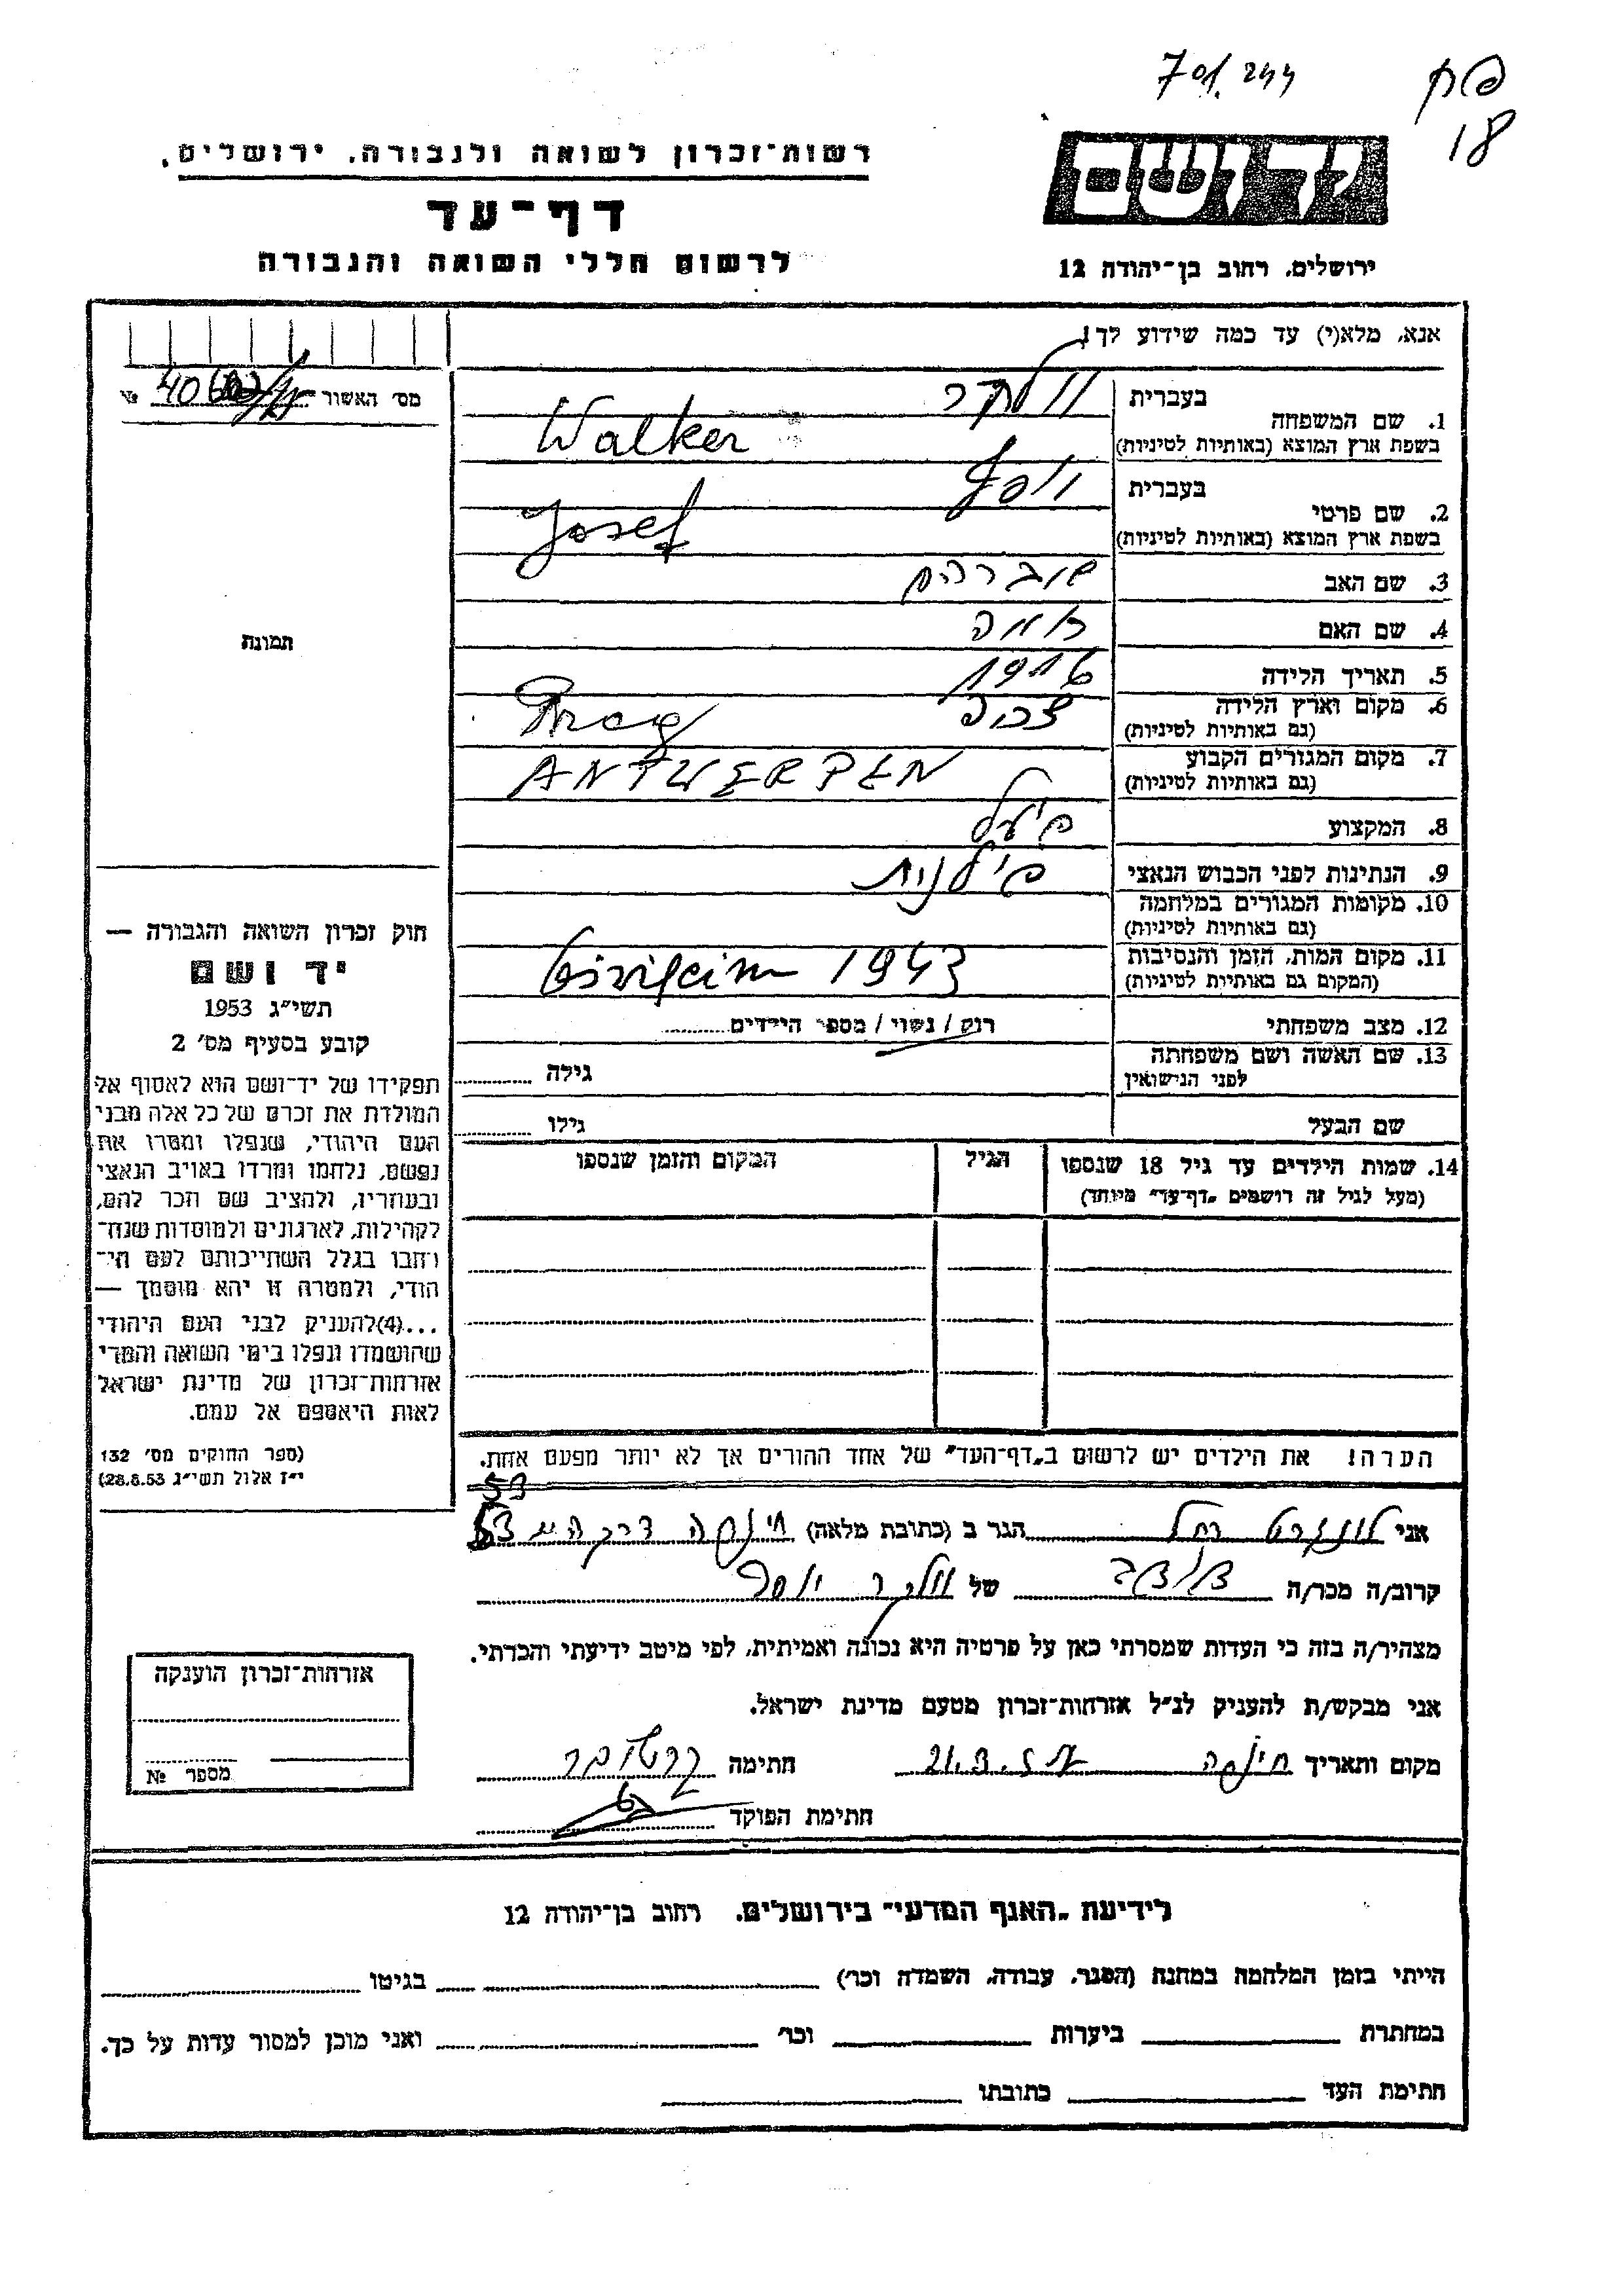 701.244
פת
18
יד ושם
רשות־זכרון לשואה ולגבורה, ירושלים.
דף־עד
לרשום חללי השואה והגבורה
ירושלים, רחוב בן־יהודה 12
אנא, מלא(י) עד כמה שידוע לך!
מס׳ האשור №
1. שם המשפחה
בעברית וולקר
בשפת ארץ המוצא (באותיות לטיניות) Walker
2. שם פרטי
בעברית יוסף
בשפת ארץ המוצא (באותיות לטיניות) Josef
3. שם האב אברהם
4. שם האם
5. תאריך הלידה 1916
6. מקום וארץ הלידה
(גם באותיות לטיניות)
7. מקום המגורים הקבוע ANTWERPEN
(גם באותיות לטיניות)
8. המקצוע
9. הנתינות לפני הכבוש הנאצי
10. מקומות המגורים במלחמה
(גם באותיות לטיניות)
11. מקום המות, הזמן והנסיבות 1943
(המקום גם באותיות לטיניות)
12. מצב משפחתי רוק / נשוי / מספר הילדים
13. שם האשה ושם משפחתה
לפני הנישואין גילה
שם הבעל גילו
14. שמות הילדים עד גיל 18 שנספו הגיל המקום והזמן שנספו
(מעל לגיל זה רושמים „דף־עד" מיוחד)
הערה! את הילדים יש לרשום ב„דף־העד" של אחד ההורים אך לא יותר מפעם אחת.
תמונת
חוק זכרון השואה והגבורה —
יד ושם
תשי״ג 1953
קובע בסעיף מס׳ 2
תפקידו של יד־ושם הוא לאסוף אל
המולדת את זכרם של כל אלה מבני
העם היהודי, שנפלו ומסרו את
נפשם, נלחמו ומרדו באויב הנאצי
ובעוזריו, ולהציב שם וזכר להם,
לקהילות, לארגונים ולמוסדות שנח־
רבו בגלל השתייכותם לעם הי־
הודי, ולמטרה זו יהא מוסמך —
...(4) להעניק לבני העם היהודי
שהושמדו ונפלו בימי השואה והמרי
אזרחות־זכרון של מדינת ישראל
לאות היאספם אל עמם.
(ספר החוקים מס׳ 132
י״ז אלול תשי״ג 28.8.53)
53
אני רחל הגר ב (כתובת מלאה) חיפה דרך הים
קרוב/ה מכר/ה של וולקר יוסף
מצהיר/ה בזה כי העדות שמסרתי כאן על פרטיה היא נכונה ואמיתית, לפי מיטב ידיעתי והכרתי.
אני מבקש/ת להעניק לנ״ל אזרחות־זכרון מטעם מדינת ישראל.
מקום ותאריך חיפה חתימה
חתימת הפוקד
אזרחות־זכרון הוענקה
מספר №
לידיעת „האגף המדעי" בירושלים, רחוב בן־יהודה 12
הייתי בזמן המלחמה במחנה (הסגר, עבודה, השמדה וכו׳) בגיטו
במחתרת ביערות וכו׳ ואני מוכן למסור עדות על כך.
חתימת העד כתובתו